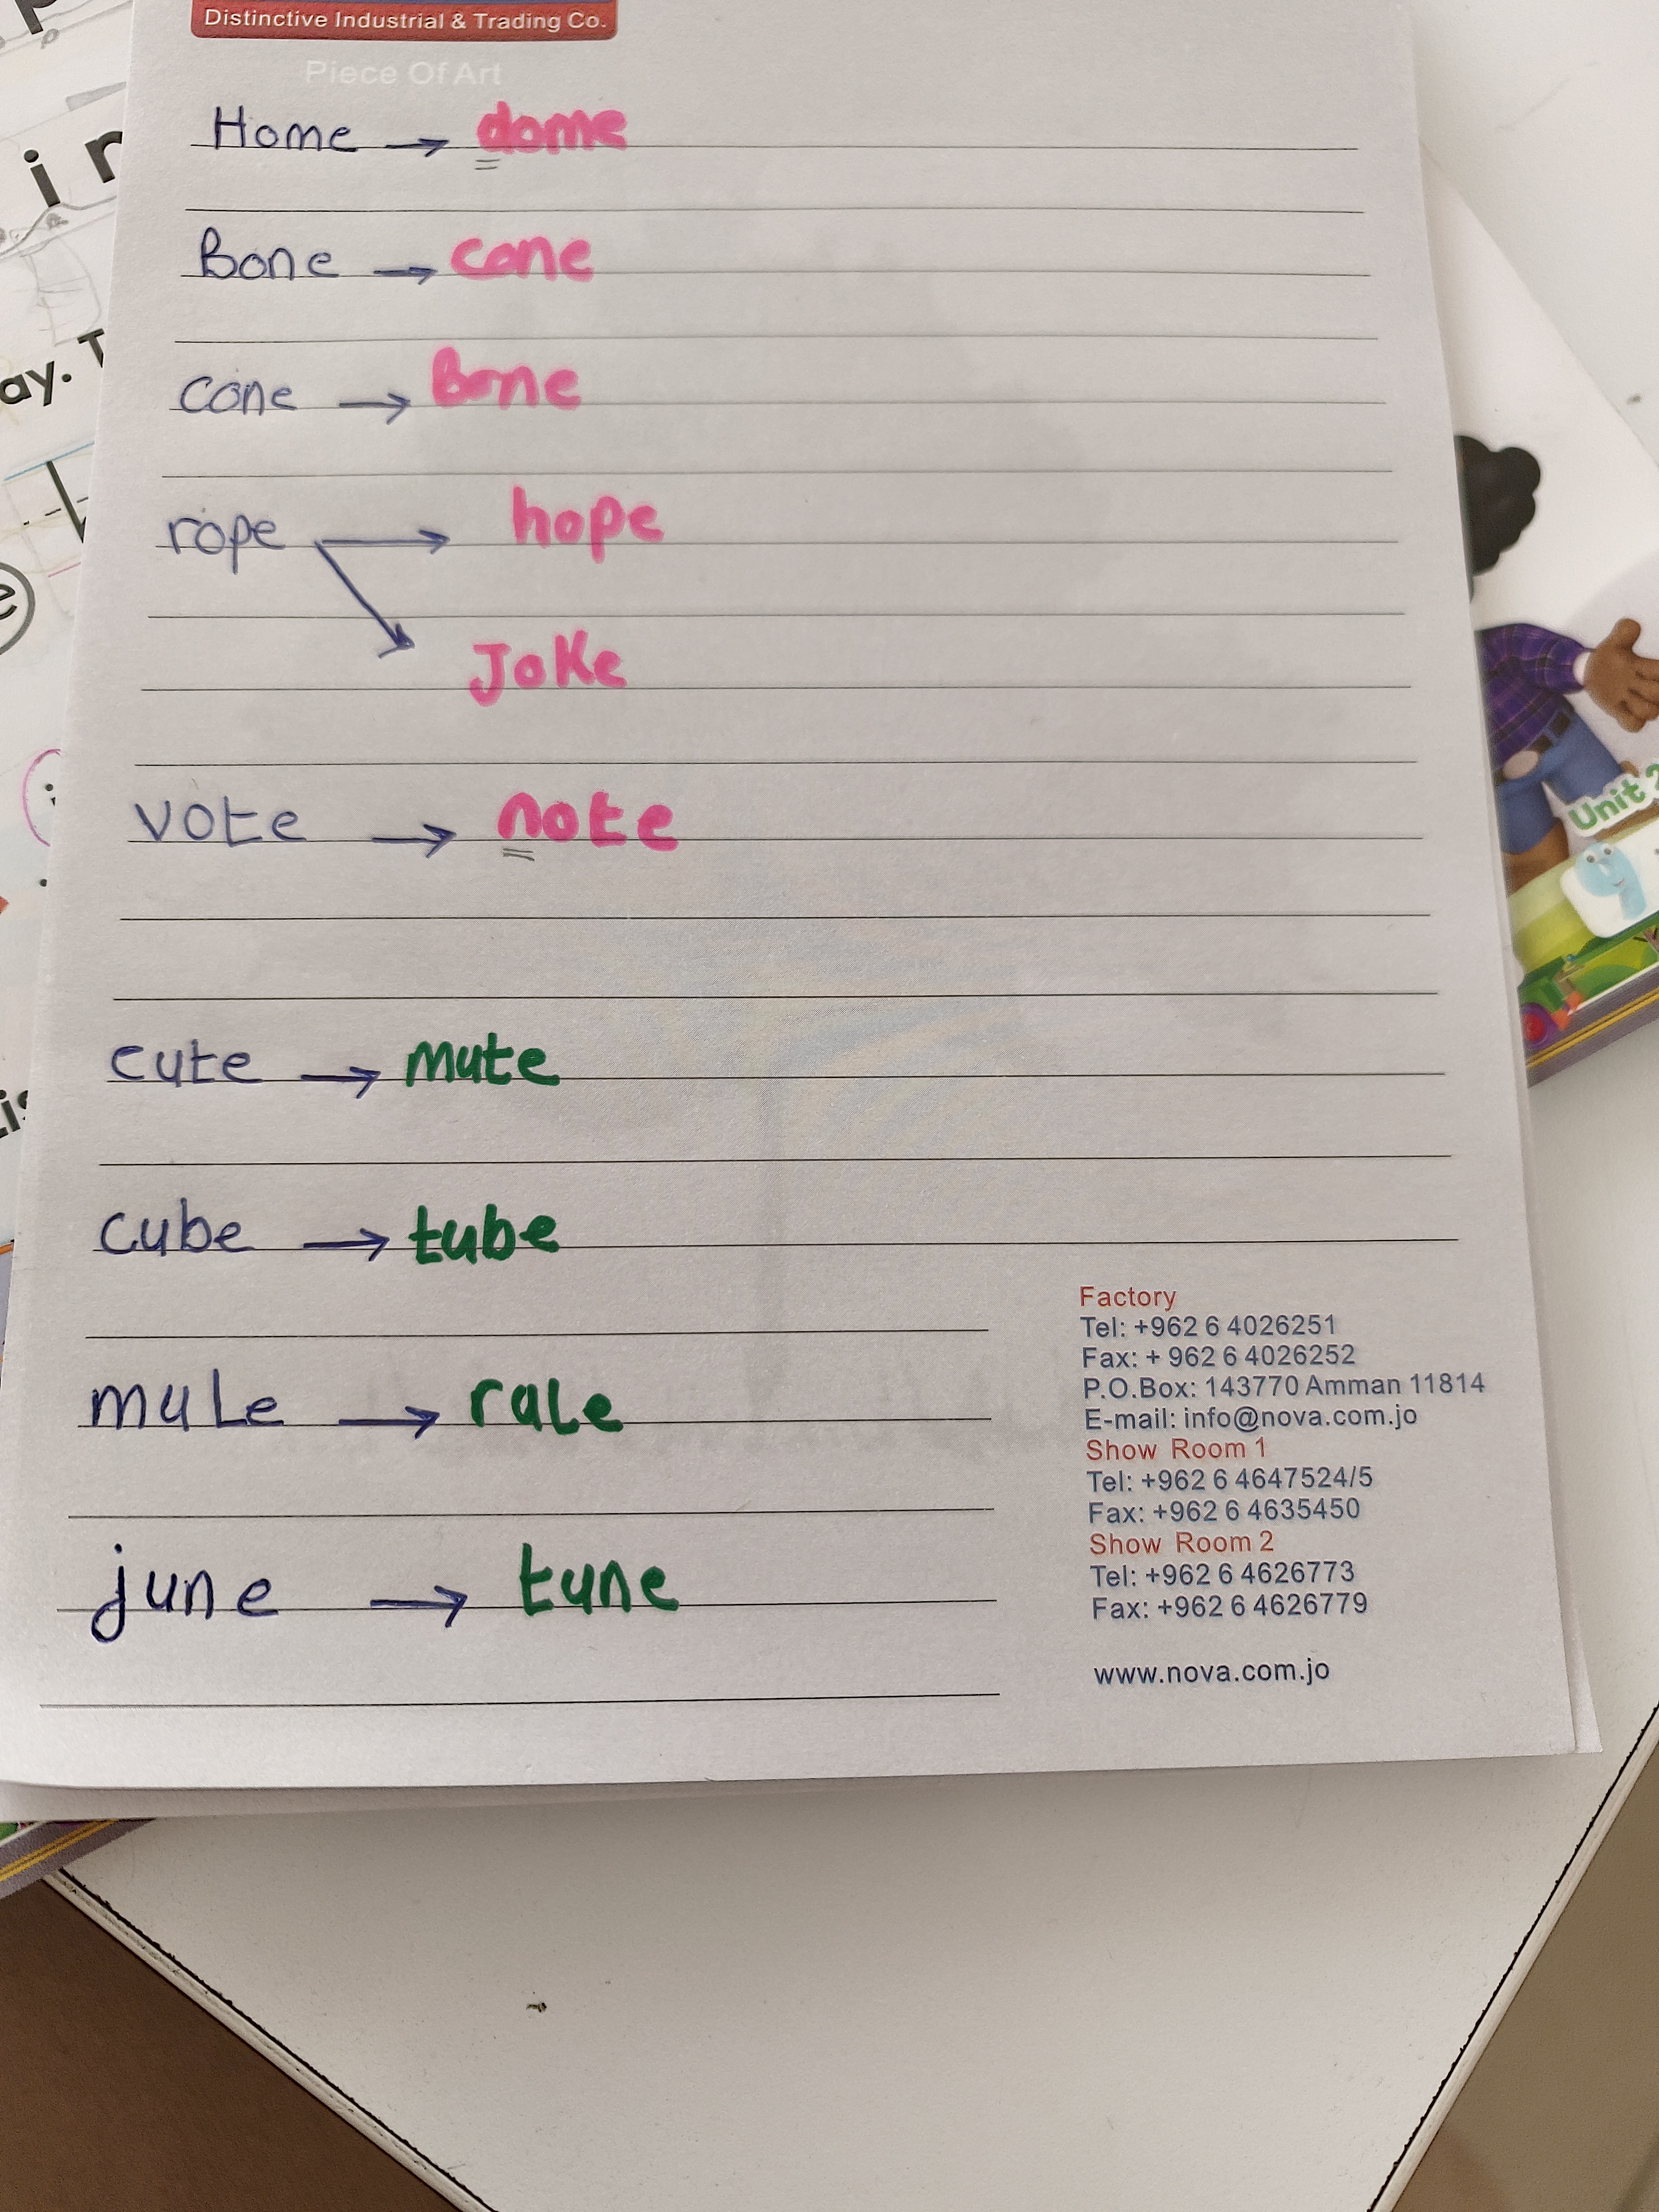 Distinctive Industrial & Trading Co.
Piece Of Art
Home → dome
Bone → cone
cone → Bone
rope → hope
Joke
vote → note
cute → mute
cube → tube
mule → rule
june → tune
Factory
Tel: +962 6 4026251
Fax: + 962 6 4026252
P.O.Box: 143770 Amman 11814
E-mail: info@nova.com.jo
Show Room 1
Tel: +962 6 4647524/5
Fax: +962 6 4635450
Show Room 2
Tel: +962 6 4626773
Fax: +962 6 4626779
www.nova.com.jo
ay.
e
Unit 2